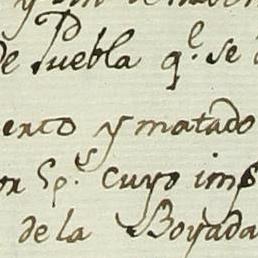 de Puebla q.e se
erto y matado
or Sp.s cuyo imp
de la Boyada